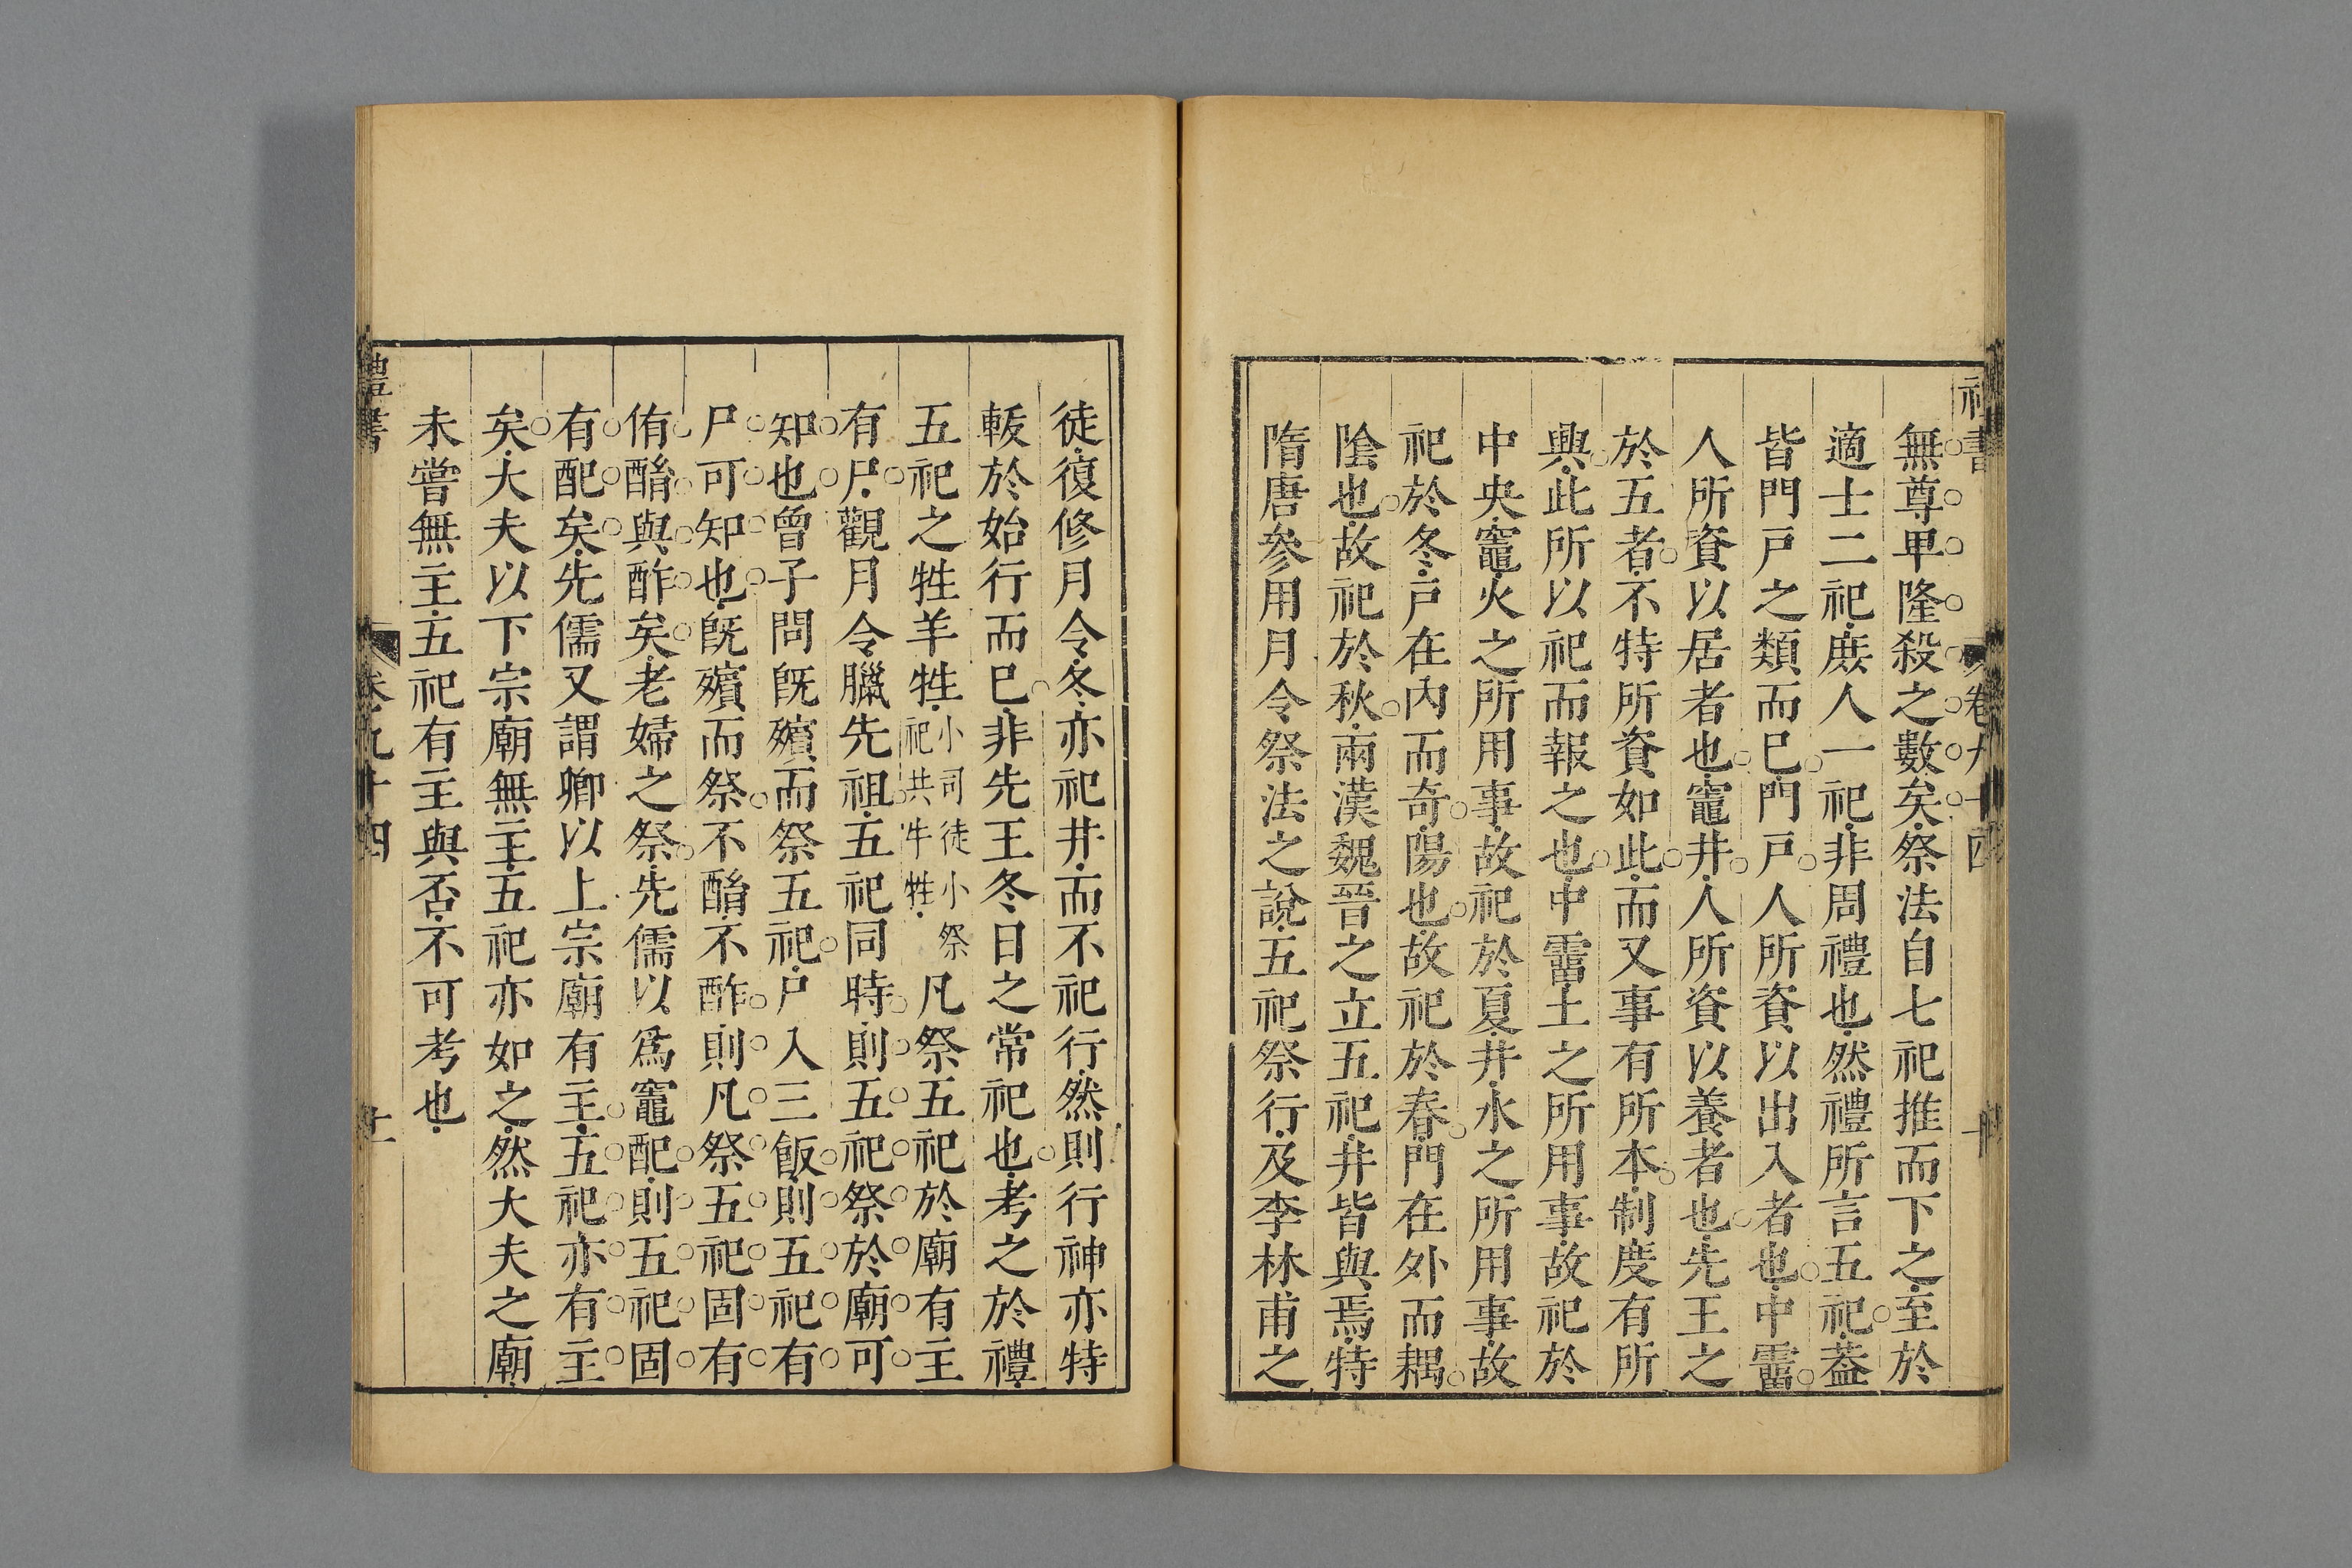 無尊卑隆殺之數矣祭法自七祀推而下之至於
適士二祀庶人一祀非周禮也然禮所言五祀葢
皆門戸之類而巳門戸人所資以出入者也中霤
人所資以居者也竈井人所資以養者也先王之
於五者不特所資如此而又事有所本制度有所
興此所以祀而報之也中霤土之所用事故祀於
中央竈火之所用事故祀於夏井水之所用事故
祀於冬戸在內而奇陽也故祀於春門在外而耦
陰也故祀於秋兩漢魏晉之立五祀井皆與焉特
隋唐參用月令祭法之說五祀祭行及李林甫之
徒復修月令冬亦祀井而不祀行然則行神亦特
軷於始行而巳非先王冬日之常祀也考之於禮
五祀之牲羊牲小司徒小祭祀共牛牲凡祭五祀於廟有主
有尸觀月令臘先祖五祀同時則五祀祭於廟可
知也曾子問旣殯而祭五祀尸入三飯則五祀有
尸可知也旣殯而祭不酳不酢則凡祭五祀固有
侑酳與酢矣老婦之祭先儒以爲竈配則五祀固
有配矣先儒又謂卿以上宗廟有主五祀亦有主
矣大夫以下宗廟無主五祀亦如之然大夫之廟
未嘗無主五祀有主與否不可考也
禮書
卷九十四